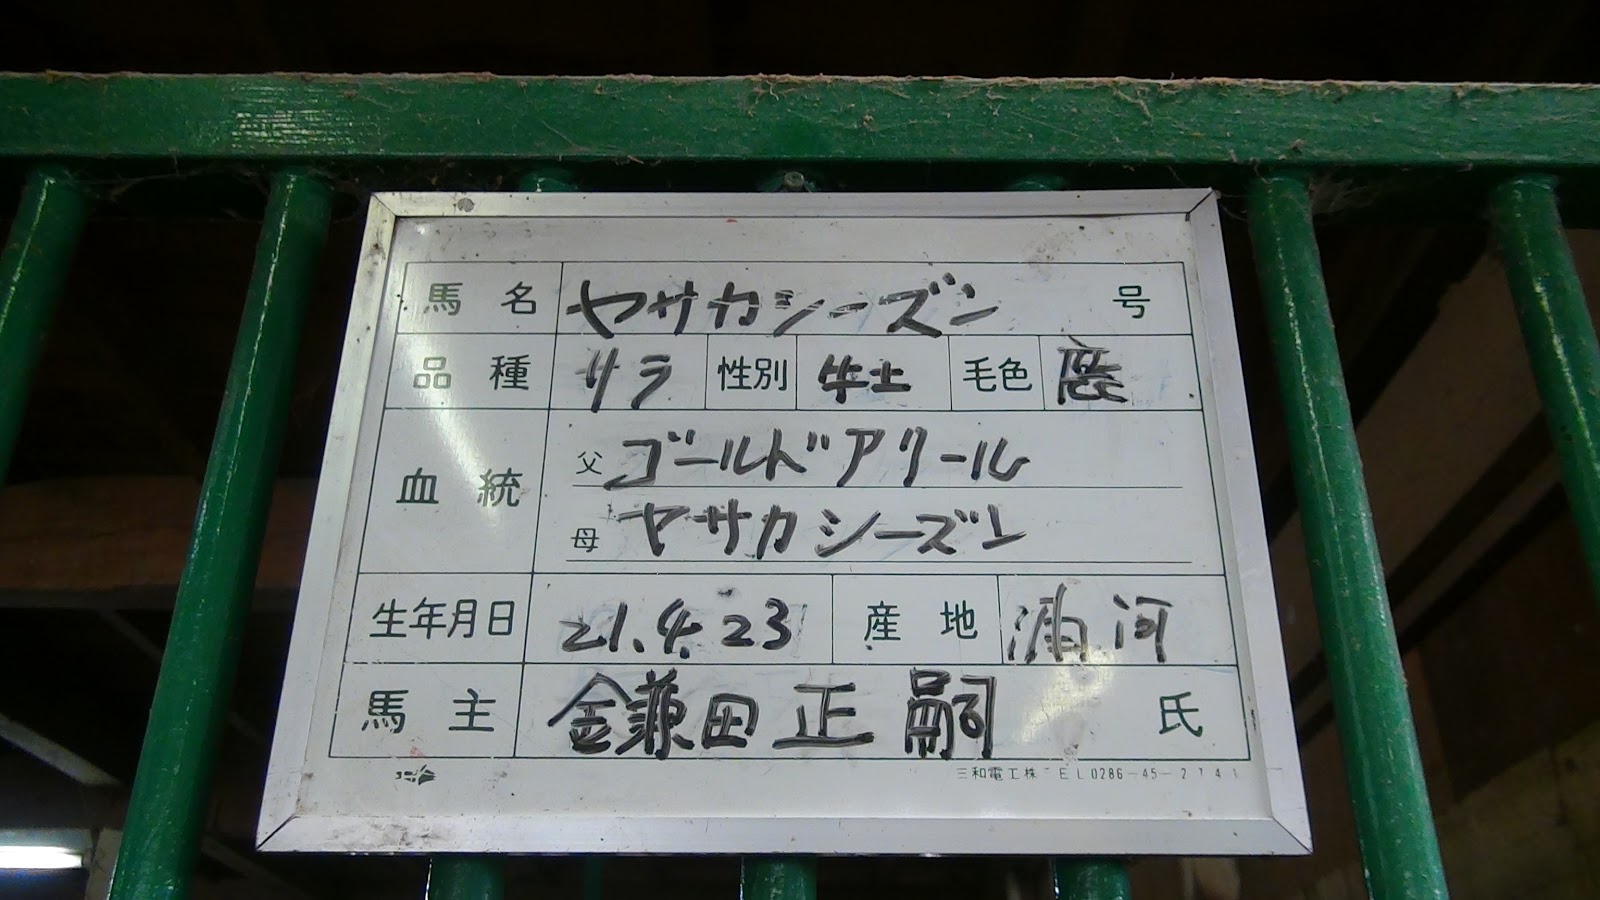 馬名 ヤサカシーズン 号
品種 サラ 性別 牡 毛色 鹿
血統 父 ゴールドアリール
母 ヤサカシーズン
生年月日 21.4.23 産地 浦河
馬主 鎌田正嗣 氏
三和電工株 TEL0286-45-2741